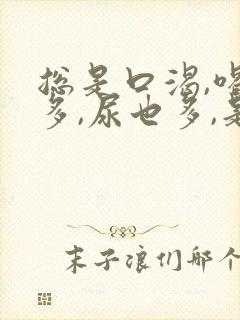 总是口渴,喝
多,尿也多,是
末子浪们那个